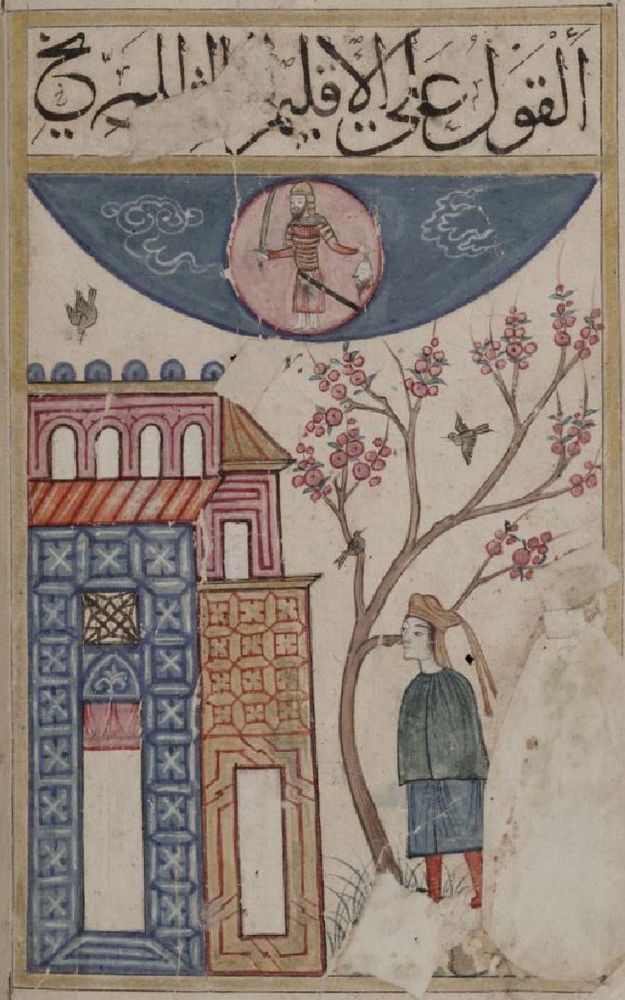 أَلْقَوْل عَلَي الاقليم للمريخ